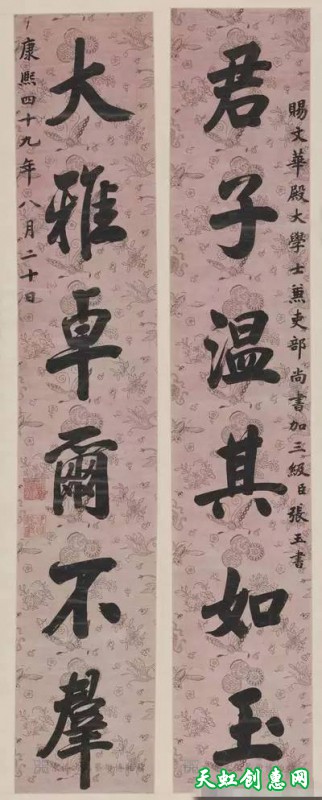 賜文華殿大學士兼吏部尚書加三級臣張玉書
君子温其如玉
大雅卓爾不羣
康熙四十九年八月二十日
天虹创惠网